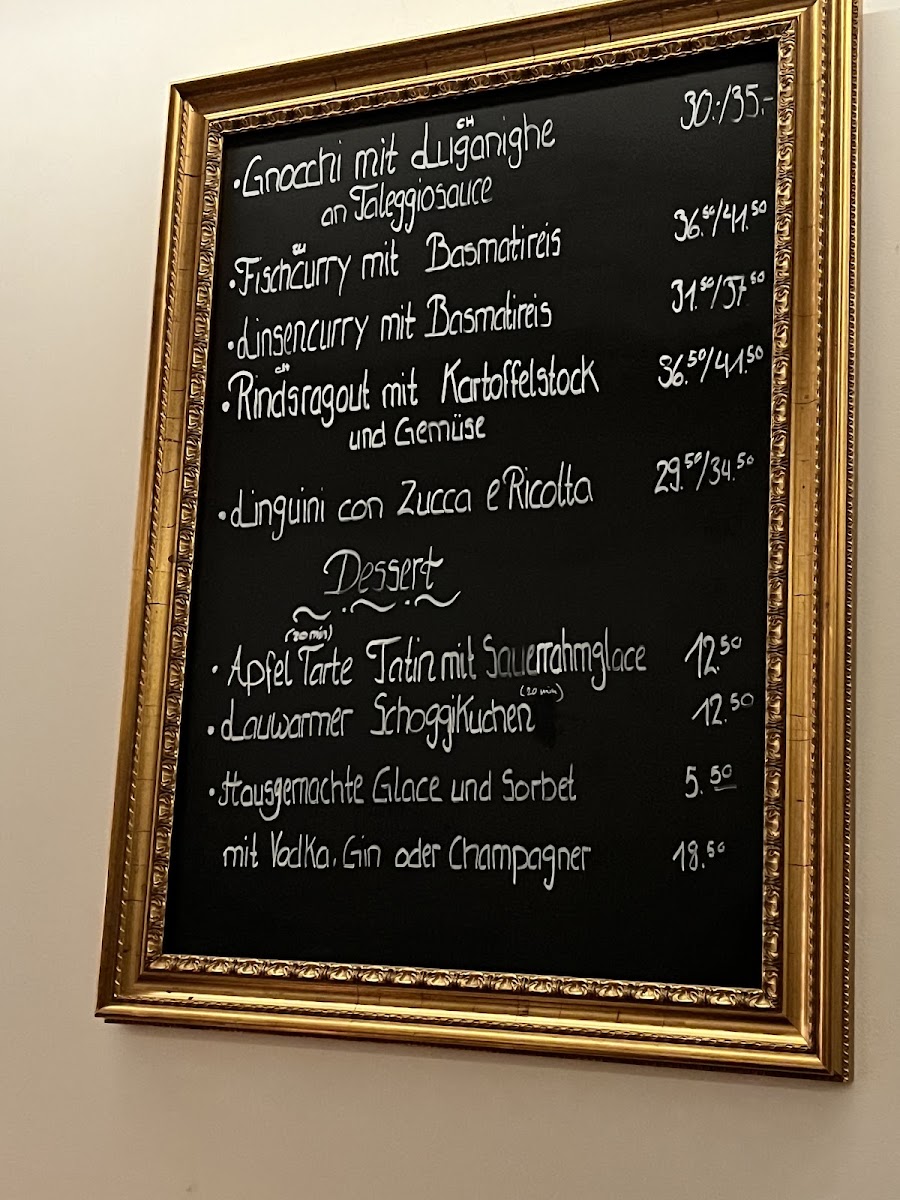 CH
• Gnocchi mit Luganighe 30.-/35.-
an Taleggiosauce
CH
• Fischcurry mit Basmatireis 36.50/41.50
• Linsencurry mit Basmatireis 31.50/37.50
CH
• Rindsragout mit Kartoffelstock 36.50/41.50
und Gemüse
• Linguini con Zucca e Ricotta 29.50/34.50
Dessert
(20 min)
• Apfel Tarte Tatin mit Sauerrahmglace 12.50
(20 min)
• Lauwarmer Schoggikuchen 12.50
• Hausgemachte Glace und Sorbet 5.50
mit Vodka, Gin oder Champagner 18.50